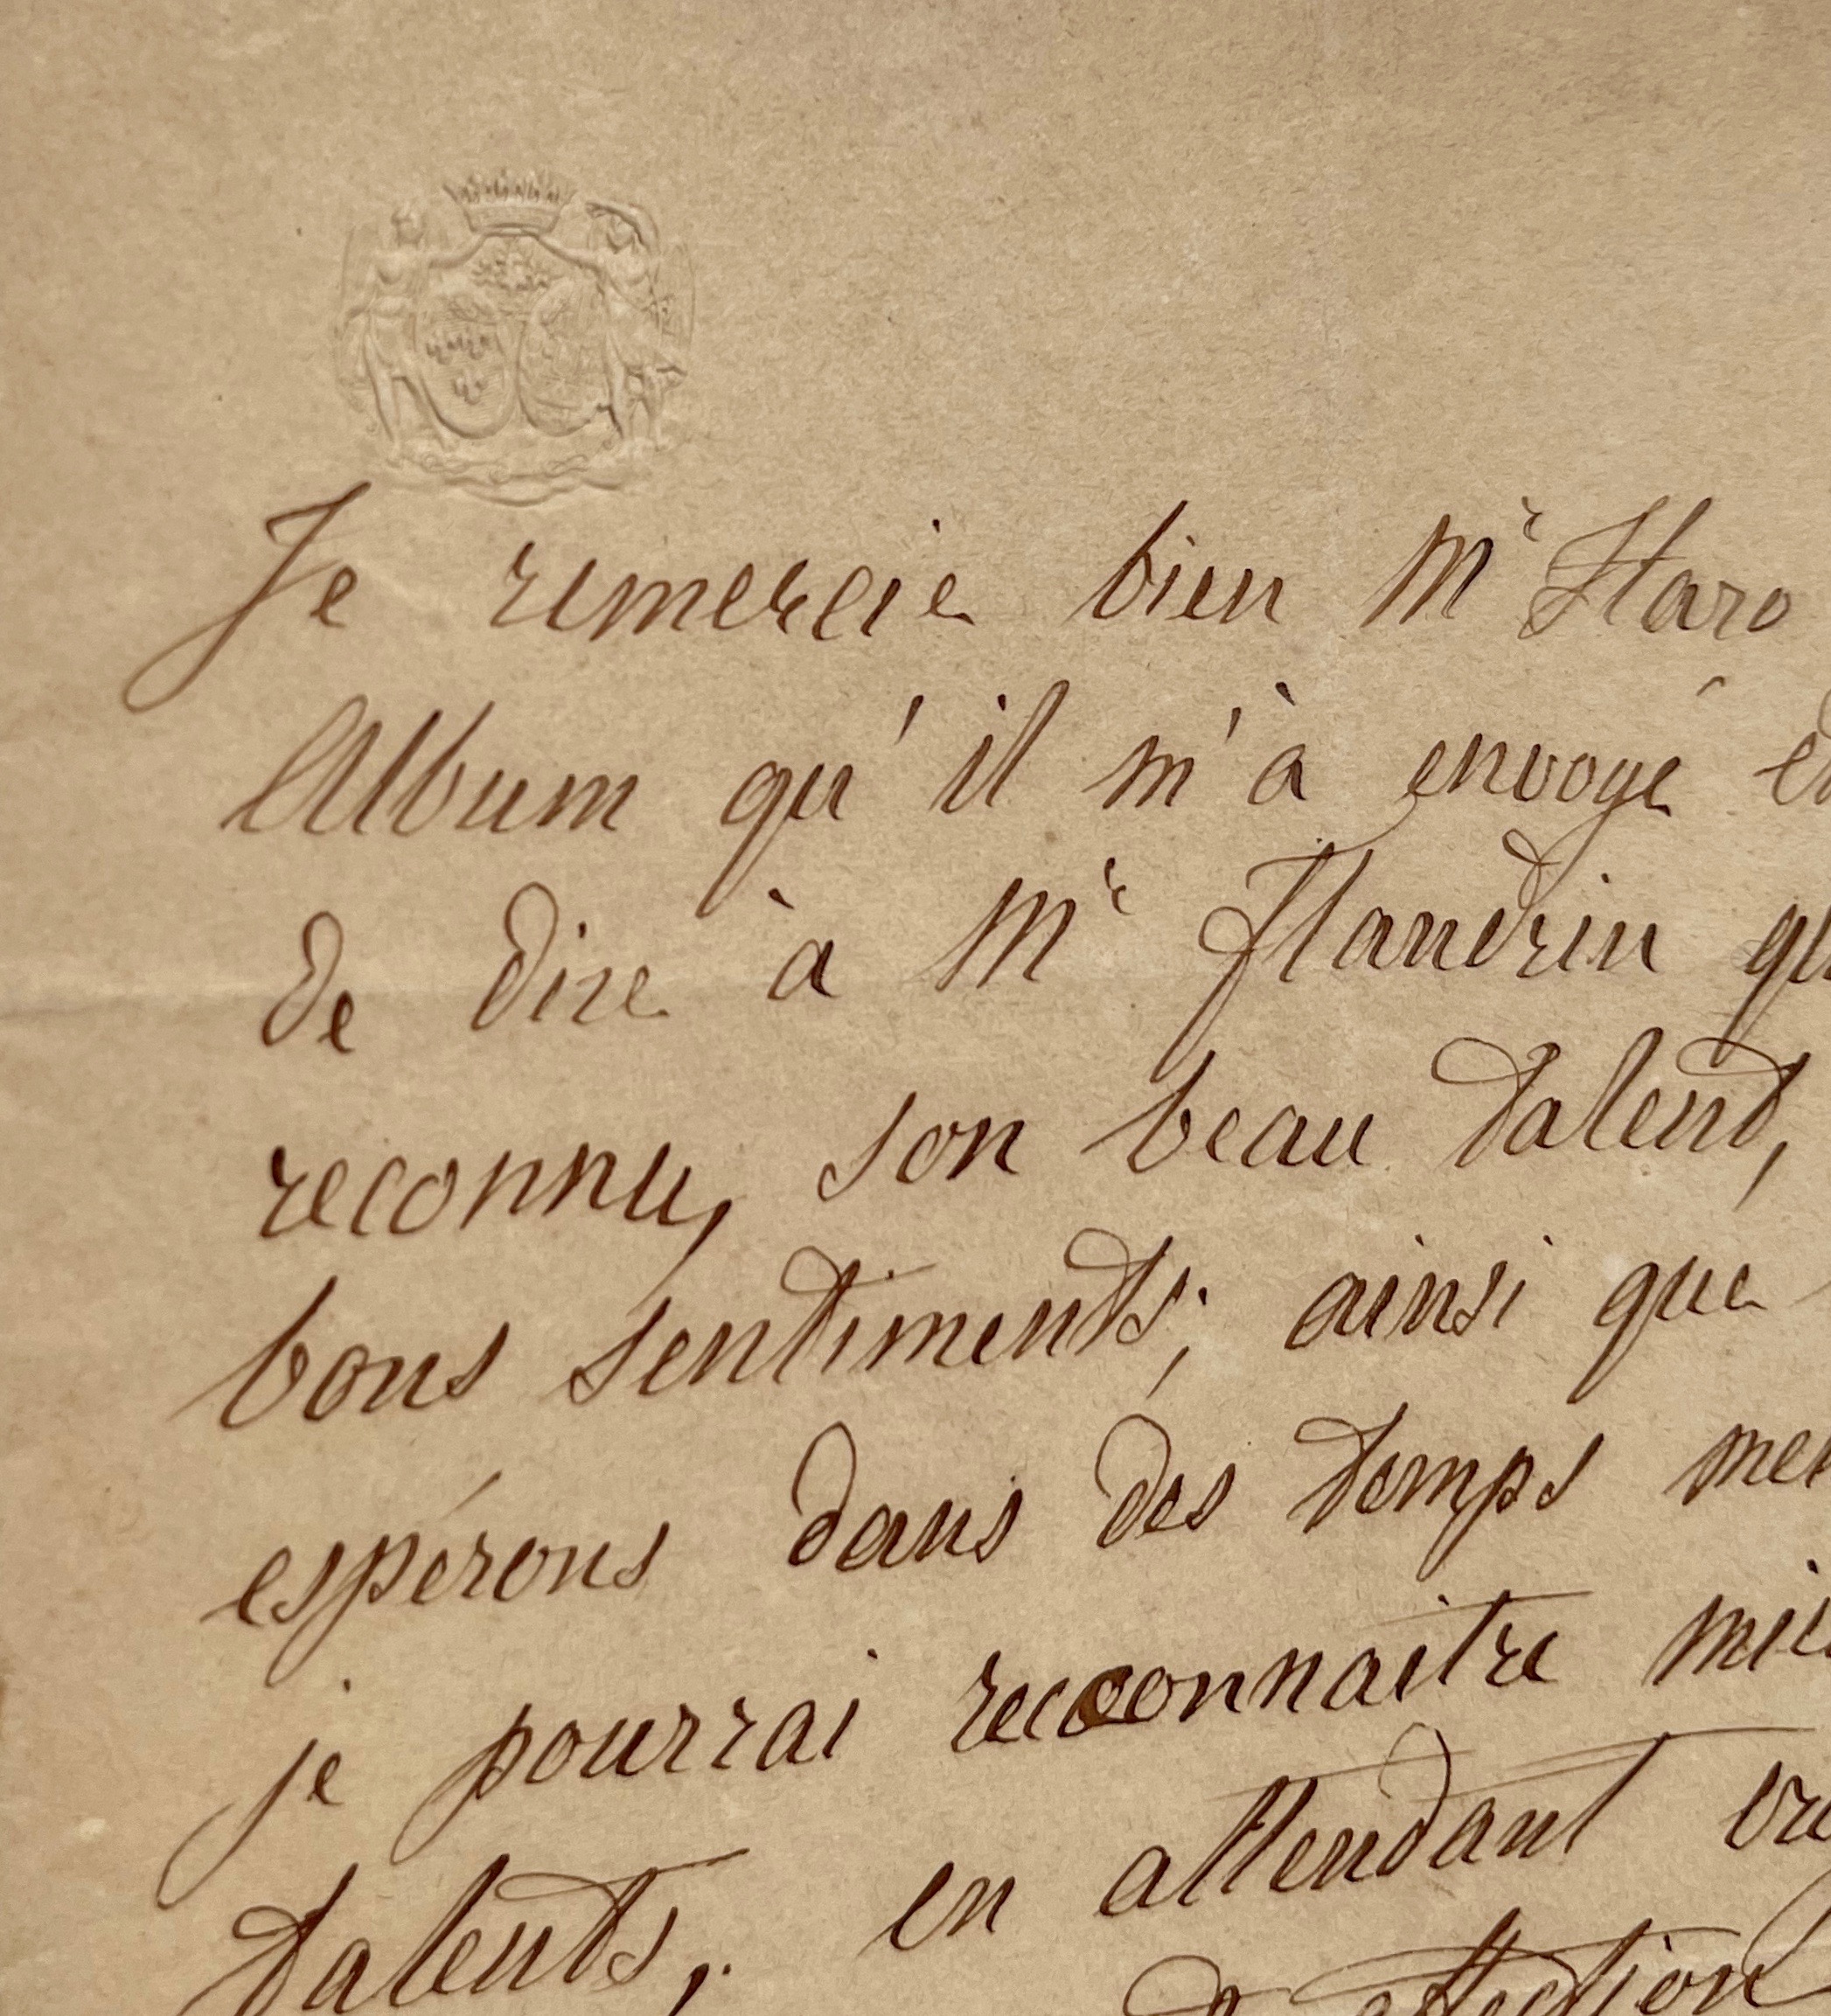 Je remercie bien Mr Haro
Album qu'il m'à envoyé
de dire à Mr Flandrin
reconnu, son beau talent,
bons sentiments; ainsi que
espérons dans des temps
je pourrai reconnaitre
talents, en attendant
d'affection